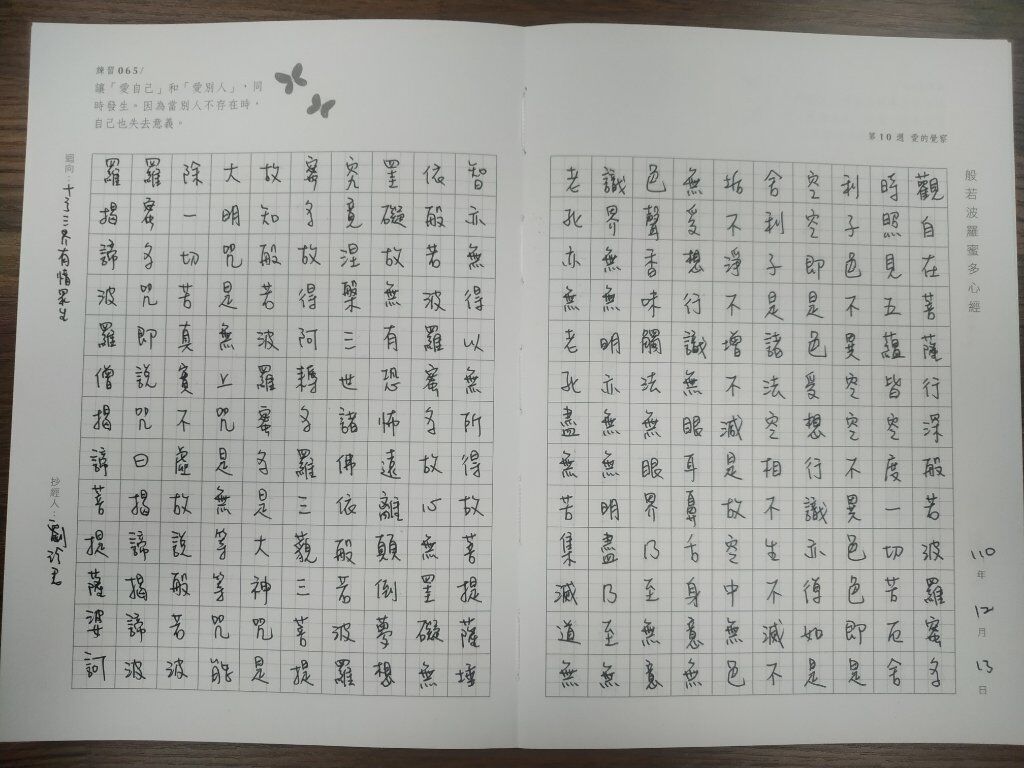 第10週 愛的覺察
般若波羅蜜多心經
110年12月13日
觀自在菩薩行深般若波羅蜜多
時照見五蘊皆空度一切苦厄舍
利子色不異空空不異色色即是
空空即是色受想行識亦復如是
舍利子是諸法空相不生不滅不
垢不淨不增不減是故空中無色
無受想行識無眼耳鼻舌身意無
色聲香味觸法無眼界乃至無意
識界無無明亦無無明盡乃至無
老死亦無老死盡無苦集滅道無
練習065/
讓「愛自己」和「愛別人」，同
時發生。因為當別人不存在時，
自己也失去意義。
智亦無得以無所得故菩提薩埵
依般若波羅蜜多故心無罣礙無
罣礙故無有恐怖遠離顛倒夢想
究竟涅槃三世諸佛依般若波羅
蜜多故得阿耨多羅三藐三菩提
故知般若波羅蜜多是大神咒是
大明咒是無上咒是無等等咒能
除一切苦真實不虛故說般若波
羅蜜多咒即說咒曰揭諦揭諦波
羅揭諦波羅僧揭諦菩提薩婆訶
迴向：十方三界有情眾生
抄經人：劉玲君